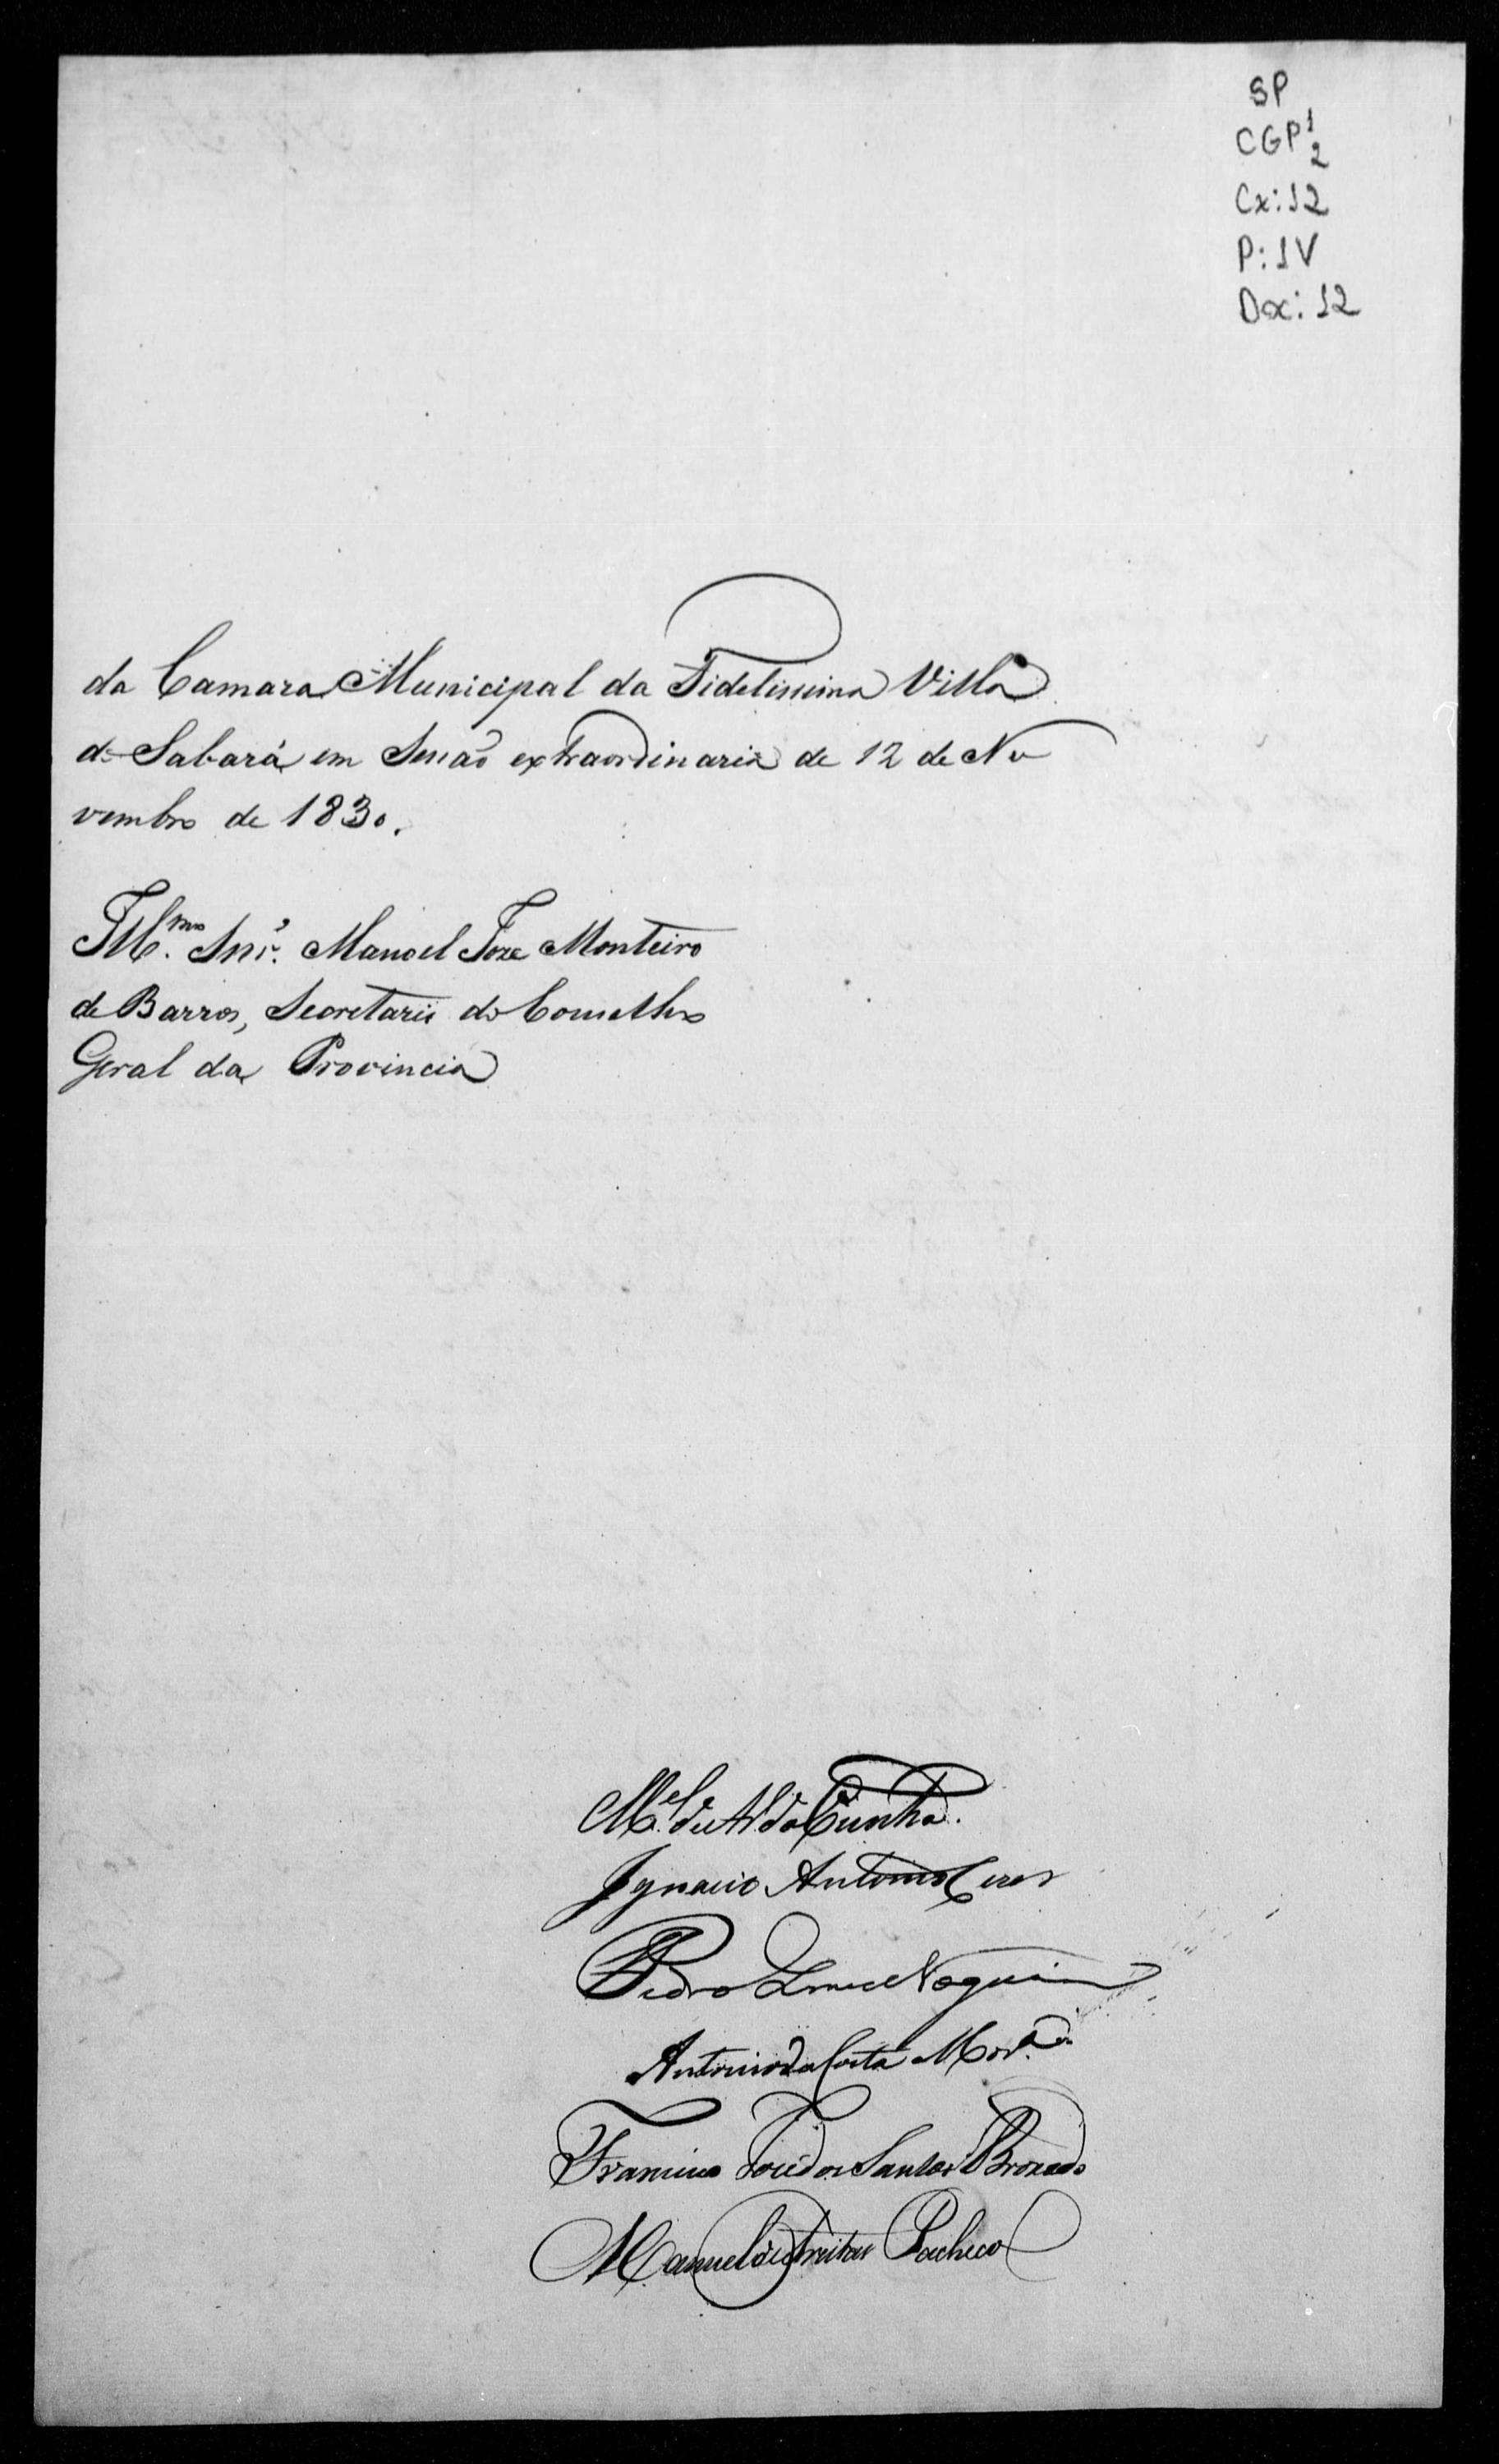 SP
CGP 1/2
Cx: 12
P: IV
Doc: 12
da Camara Municipal da Fidelissima Villa
de Sabará em Sessaõ extraordinaria de 12 de No
vembro de 1830.
Illmo. Snr. Manoel Joze Monteiro
de Barros, Secretario do Conselho
Geral da Provincia
Mel. da Cunha.
Ignacio Antonio
Pedro Nogueira
Antonio da Costa
Francisco José dos Santos Brochado
Manuel de Freitas Pacheco